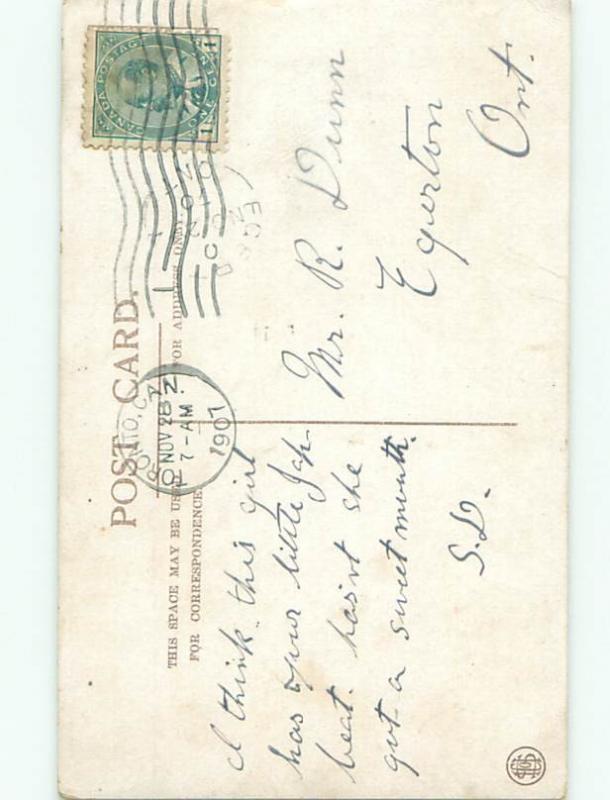 POST CARD.
THIS SPACE MAY BE USED
FOR CORRESPONDENCE
FOR ADDRESS ONLY.
CANADA POSTAGE
ONE CENT
1 1
NOV 28
7-AM
1907
DEC
I think this girl
has your little Jap
beat. hasn't she
got a sweet mouth.
S.D.
Mr. R. Dunn
Egerton
Ont.